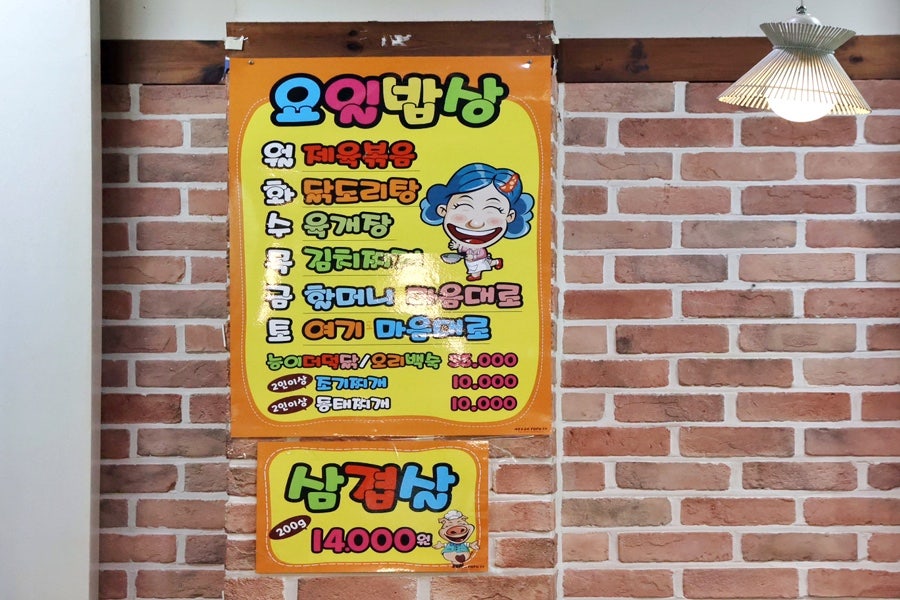 요일밥상
월 제육볶음
화 닭도리탕
수 육개장
목 김치찌개
금 할머니 마음대로
토 여기 마음대로
능이더덕닭/오리백숙 55,000
2인이상 조기찌개 10,000
2인이상 동태찌개 10,000
삼겹살
200g 14,000원